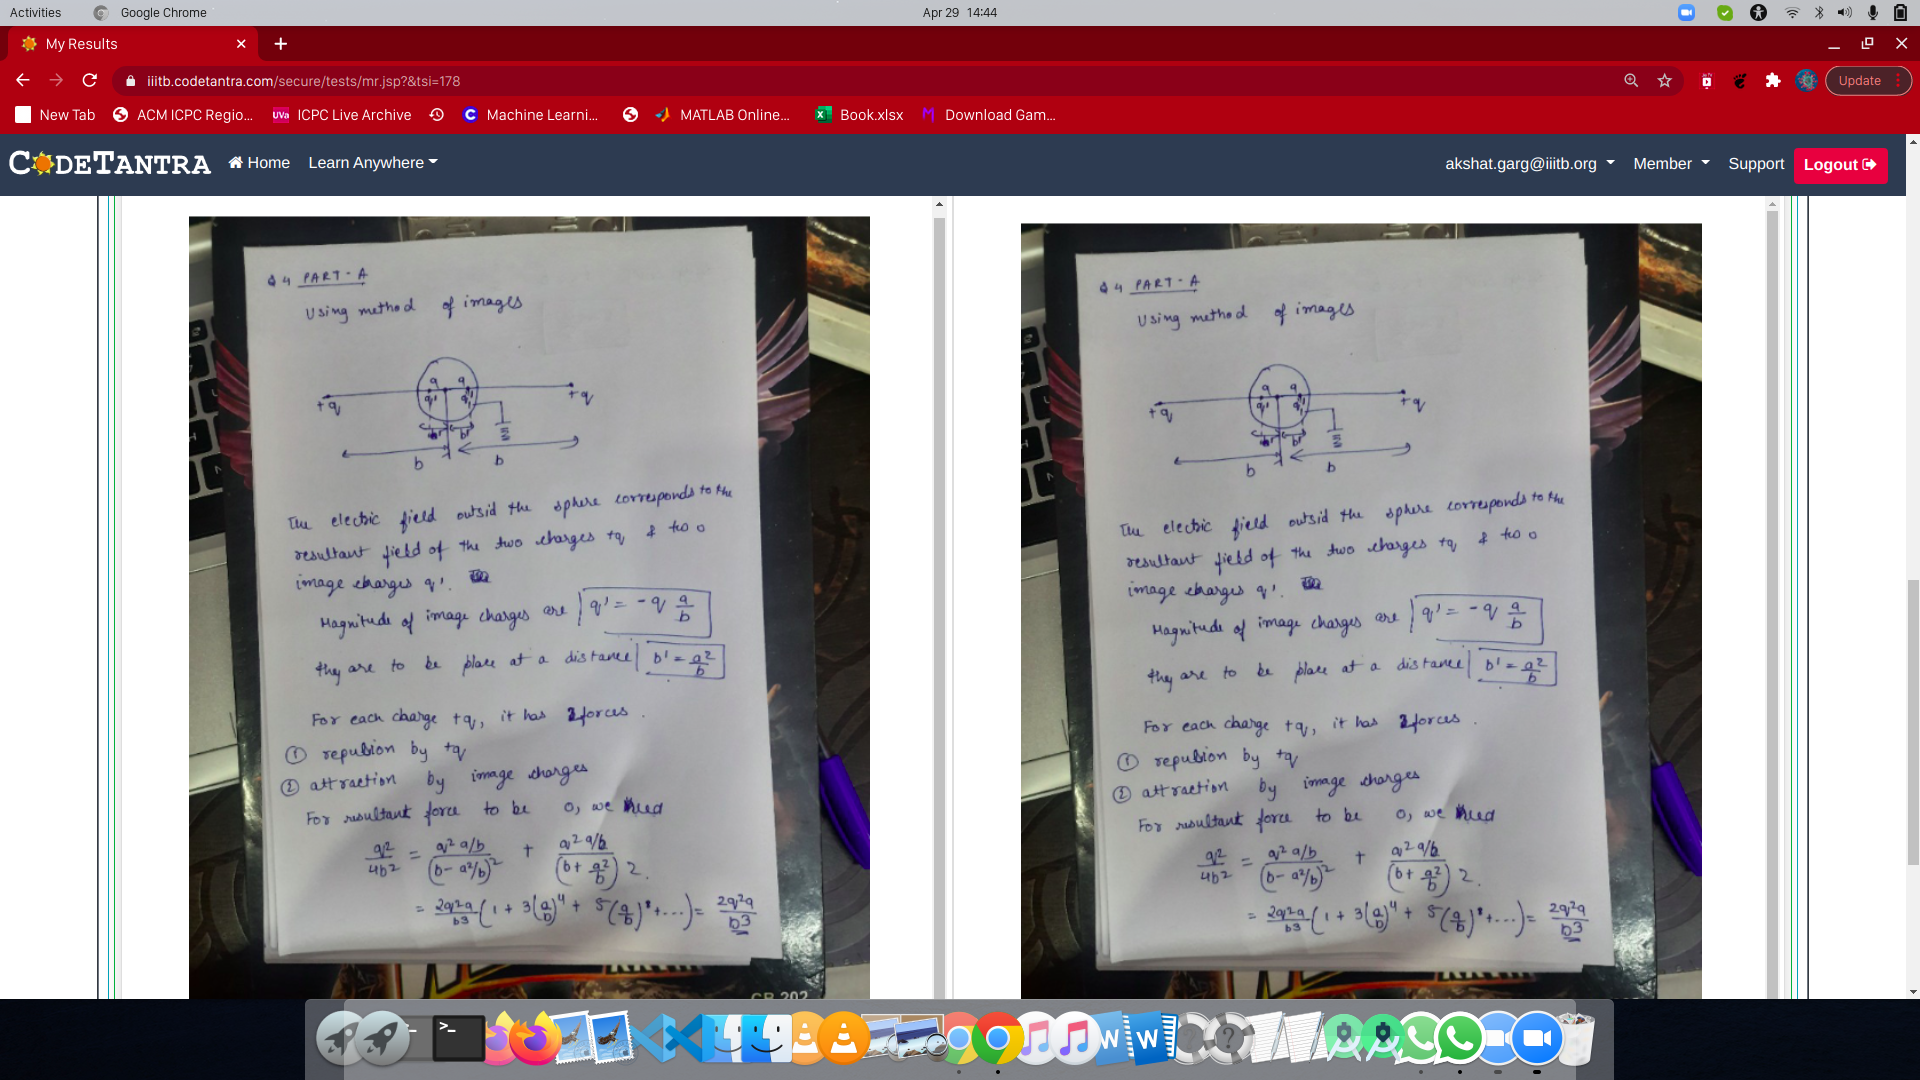 Activities
Google Chrome
Apr 29 14:44
My Results
iiitb.codetantra.com/secure/tests/mr.jsp?&tsi=178
Update
New Tab
ACM ICPC Regio...
UVa ICPC Live Archive
Machine Learni...
MATLAB Online...
Book.xlsx
Download Gam...
CODETANTRA
Home
Learn Anywhere
akshat.garg@iiitb.org
Member
Support
Logout
Q4 PART-A
Using method of images
q q
+q q' q' +q
b' b'
b b
The electric field outsid the sphere corresponds to the
resultant field of the two charges +q & two
image charges q'.
Magnitude of image charges are q' = -q a/b
they are to be place at a distance b' = a²/b
For each charge +q, it has 2 forces.
① repulsion by +q
② attraction by image charges
For resultant force to be 0, we need
q²/4b² = q² a/b / (b - a²/b)² + q² a/b / (b + a²/b)2.
= 2q²a/b3 (1 + 3(a/b)⁴ + 5(a/b)⁸ + ...) = 2q²a/b3
CB 202
Q4 PART-A
Using method of images
q q
+q q' q' +q
b' b'
b b
The electric field outsid the sphere corresponds to the
resultant field of the two charges +q & two
image charges q'.
Magnitude of image charges are q' = -q a/b
they are to be place at a distance b' = a²/b
For each charge +q, it has 2 forces.
① repulsion by +q
② attraction by image charges
For resultant force to be 0, we need
q²/4b² = q² a/b / (b - a²/b)² + q² a/b / (b + a²/b)2.
= 2q²a/b3 (1 + 3(a/b)⁴ + 5(a/b)⁸ + ...) = 2q²a/b3